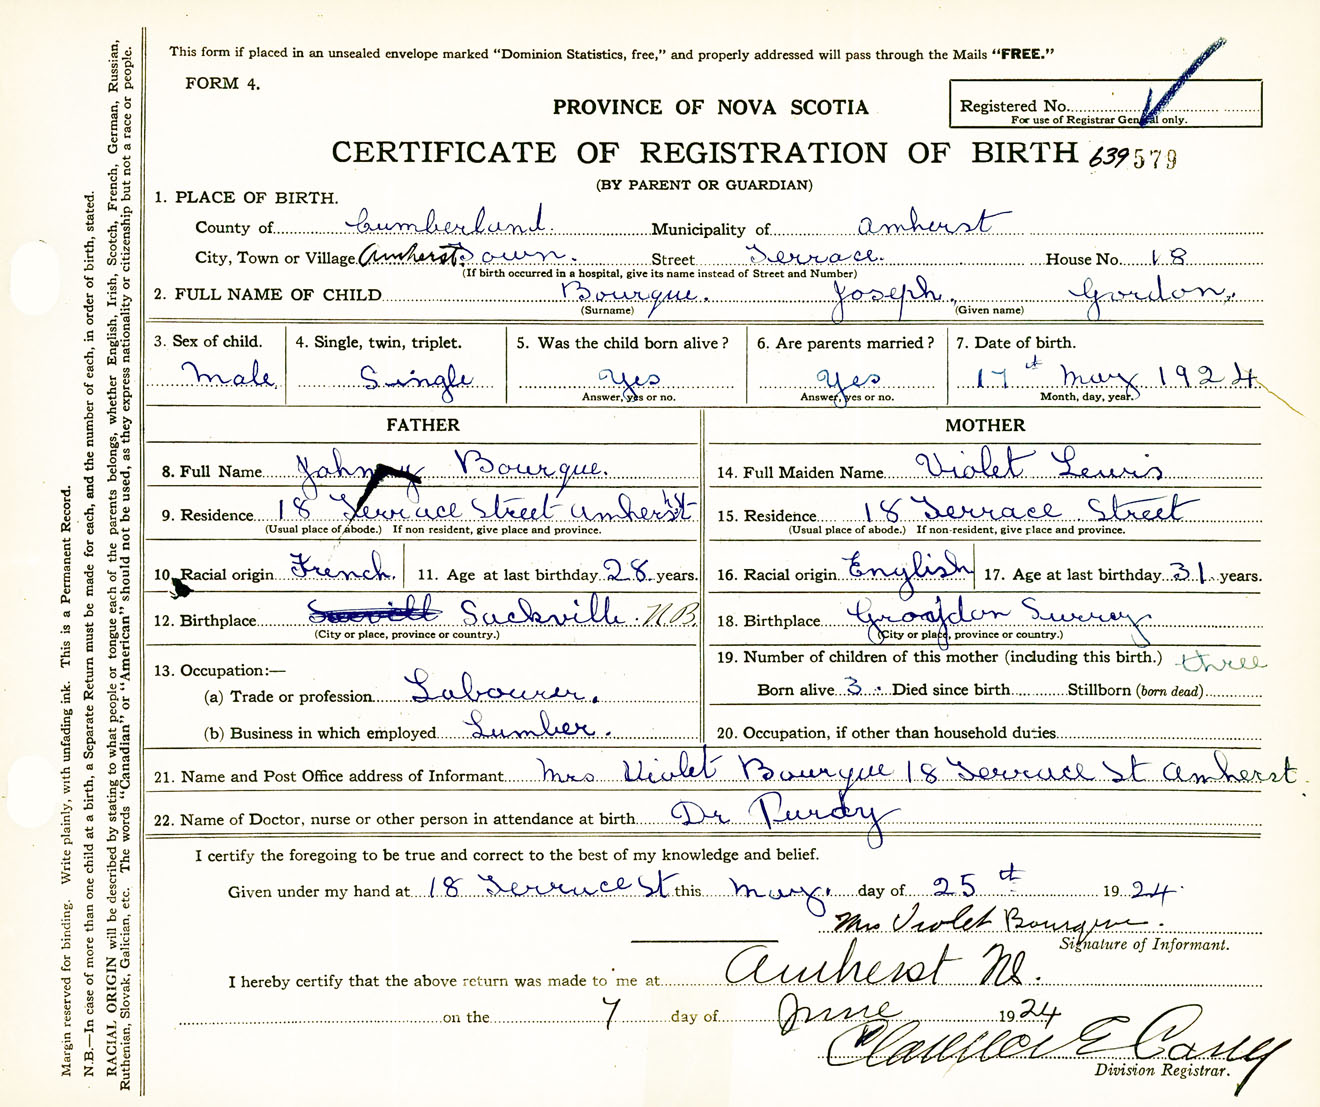 This form if placed in an unsealed envelope marked "Dominion Statistics, free," and properly addressed will pass through the Mails "FREE."
FORM 4.
PROVINCE OF NOVA SCOTIA
Registered No.
For use of Registrar General only.
CERTIFICATE OF REGISTRATION OF BIRTH 639 579
(BY PARENT OR GUARDIAN)
1. PLACE OF BIRTH.
County of Cumberland. Municipality of Amherst
City, Town or Village Amherst Town. Street Terrace. House No. 18
(If birth occurred in a hospital, give its name instead of Street and Number)
2. FULL NAME OF CHILD Bourque. Joseph, Gordon.
(Surname) (Given name)
3. Sex of child. 4. Single, twin, triplet. 5. Was the child born alive? 6. Are parents married? 7. Date of birth.
Male Single Yes Yes 17th May 1924
Answer, yes or no. Answer, yes or no. Month, day, year.
FATHER MOTHER
8. Full Name Johnny Bourque. 14. Full Maiden Name Violet Lewis
9. Residence 18 Terrace Street Amherst 15. Residence 18 Terrace Street
(Usual place of abode.) If non resident, give place and province. (Usual place of abode.) If non-resident, give place and province.
10. Racial origin French. 11. Age at last birthday 28 years. 16. Racial origin English 17. Age at last birthday 31 years.
12. Birthplace Sackville. N.B. 18. Birthplace Croydon Surrey
(City or place, province or country.) (City or place, province or country.)
13. Occupation:— 19. Number of children of this mother (including this birth.) three
(a) Trade or profession Labourer. Born alive 3. Died since birth Stillborn (born dead)
(b) Business in which employed Lumber. 20. Occupation, if other than household duties
21. Name and Post Office address of Informant Mrs Violet Bourque 18 Terrace St Amherst
22. Name of Doctor, nurse or other person in attendance at birth Dr Purdy
I certify the foregoing to be true and correct to the best of my knowledge and belief.
Given under my hand at 18 Terrace St this May. day of 25th 1924.
Mrs Violet Bourque.
Signature of Informant.
I hereby certify that the above return was made to me at Amherst NS.
on the 7 day of June 1924
E Casey
Division Registrar.
Margin reserved for binding. Write plainly, with unfading ink. This is a Permanent Record.
N.B.—In case of more than one child at a birth, a Separate Return must be made for each, and the number of each, in order of birth, stated.
RACIAL ORIGIN will be described by stating to what people or tongue each of the parents belongs, whether English, Irish, Scotch, French, German, Russian,
Ruthenian, Slovak, Galician, etc. The words "Canadian" or "American" should not be used, as they express nationality or citizenship but not a race or people.